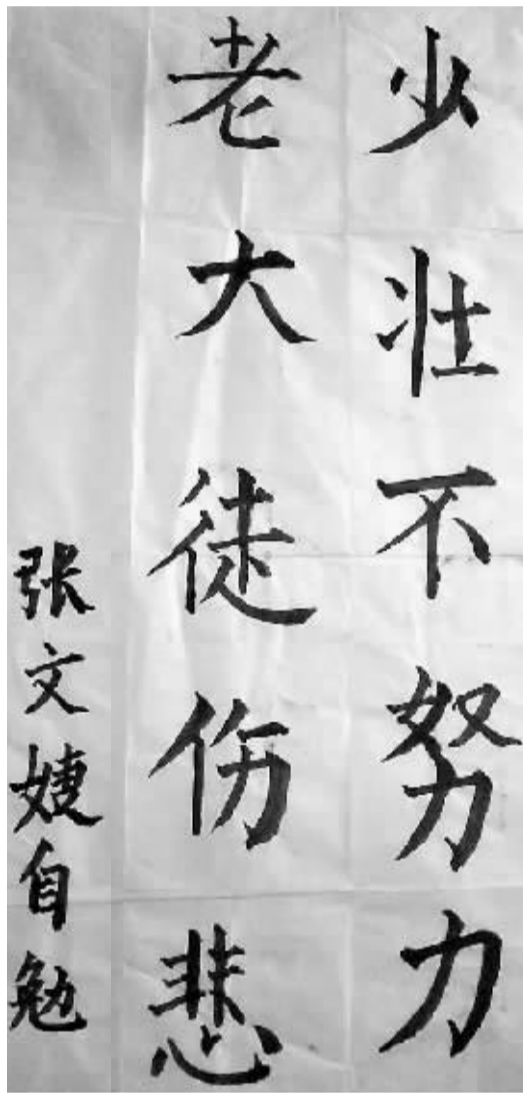 少壮不努力
老大徒伤悲
张文婕自勉